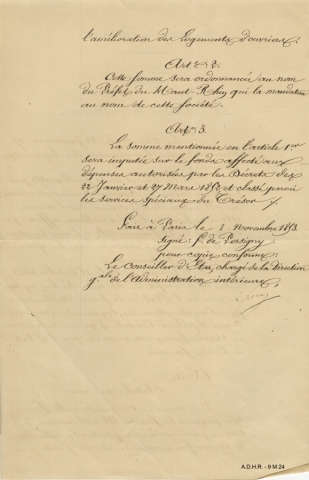 l'amélioration des Logements d'ouvriers.
Art. 2.
Cette somme sera ordonnancée au nom
du Préfet du Haut-Rhin qui la mandatera
au nom de cette Société.
Art. 3.
La somme mentionnée en l'article 1er
sera imputée sur le fonds affecté aux
dépenses autorisées par les Décrets des
22 Janvier et 27 Mars 1852 et classé parmi
les services spéciaux du Trésor
Fait à Paris le 8 Novembre 1853
signé: f. de Persigny
pour copie conforme:
Le Conseiller d'Etat chargé de la Direction
gale de l'Administration intérieure,
A.D.H.R. - 9 M 24